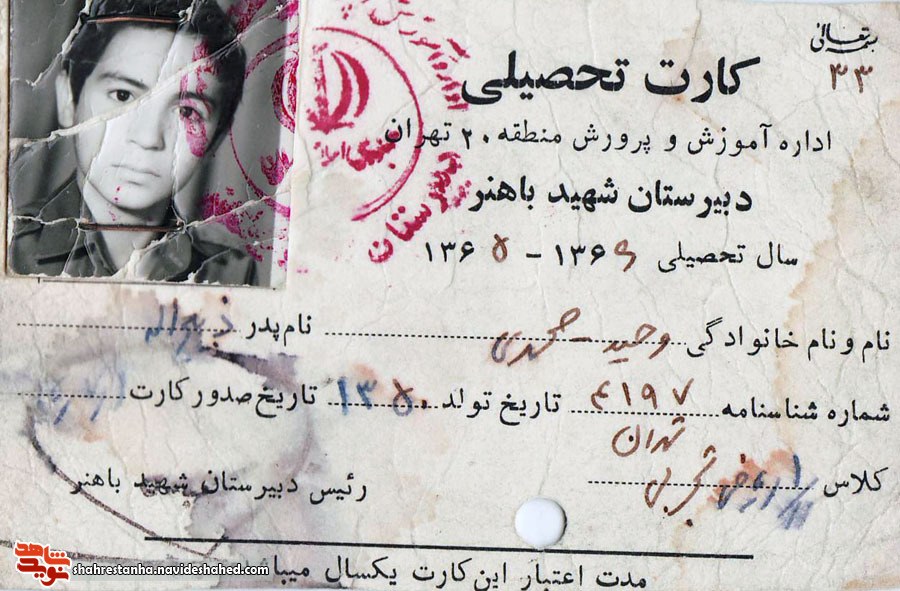 بسمه تعالی
۴۳
کارت تحصیلی
اداره آموزش و پرورش منطقه ۲۰ تهران
دبیرستان شهید باهنر
سال تحصیلی ۱۳۶۶ - ۱۳۶۵
نام و نام خانوادگی وحید - محمدی نام پدر ذبیح اله
شماره شناسنامه ۴۱۹۷ تاریخ تولد ۱۳۵۰ تاریخ صدور کارت
تهران
کلاس تجربی
رئیس دبیرستان شهید باهنر
مدت اعتبار این کارت یکسال
نوید شاهد
shahrestanha.navideshahed.com